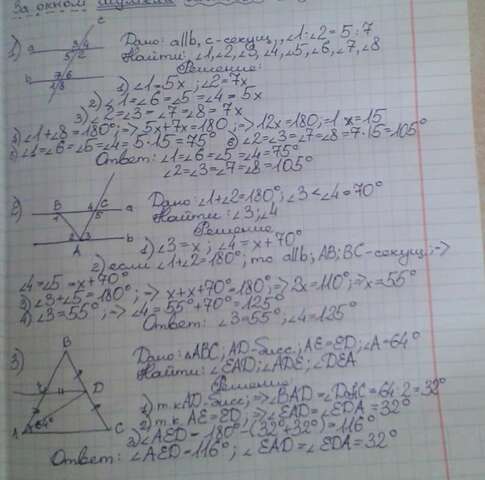 За окном
1) a b c 3 4 5 2 7 6 1 8
Дано: a||b, c-секущ., ∠1:∠2=5:7
Найти: ∠1,∠2,∠3,∠4,∠5,∠6,∠7,∠8
Решение:
1) ∠1=5x; ∠2=7x
2) ∠1=∠6=∠5=∠4=5x
3) ∠2=∠3=∠7=∠8=7x
∠1+∠8=180°;→ 5x+7x=180;→12x=180;=1 x=15
∠1=∠6=∠5=∠4=5·15=75° 6) ∠2=∠3=∠7=∠8=7·15=105°
Ответ: ∠1=∠6=∠5=∠4=75°
∠2=∠3=∠7=∠8=105°
2) B 1 4 C 5 a A 2 3 b
Дано: ∠1+∠2=180°; ∠3<∠4=70°
Найти: ∠3;∠4
Решение
1) ∠3=x; ∠4=x+70°
2) если ∠1+∠2=180°; то a||b; AB; BC-секущ;→
∠4=∠5=x+70°
3) ∠3+∠5=180°;→ x+x+70°=180°;→2x=110°;→x=55°
4) ∠3=55°;→ ∠4=55°+70°=125°
Ответ: ∠3=55°; ∠4=125°
3) B D A 64° C
Дано: △ABC, AD-бисс.; AE=ED; ∠A=64°
Найти: ∠EAD; ∠ADE; ∠DEA
Решение
1) т.к AD-бисс;→∠BAD=∠DAC=64:2=32°
2) т.к AE=ED;→∠EAD=∠EDA=32°
3) ∠AED=180°-(32°+32°)=116°
Ответ: ∠AED=116°; ∠EAD=∠EDA=32°